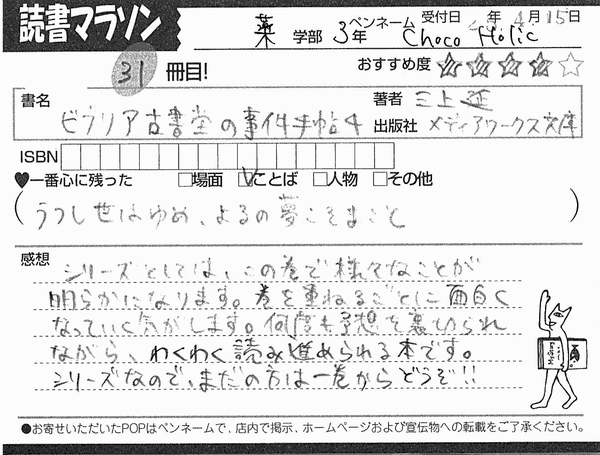 読書マラソン
薬 学部 3年 ペンネーム Choco Holic 受付日 年 4月15日
31 冊目!
おすすめ度 ★★★★☆
書名 ビブリア古書堂の事件手帖4
著者 三上延
出版社 メディアワークス文庫
ISBN
♥一番心に残った □場面 ☑ことば □人物 □その他
(うつし世はゆめ、よるの夢こそまこと)
感想
シリーズとしては、この巻で様々なことが
明らかになります。巻を重ねるごとに面白く
なっていく気がします。何度も予想を裏切られ
ながら、わくわく読み進められる本です。
シリーズなので、まだの方は一巻からどうぞ!!
●お寄せいただいたPOPはペンネームで、店内で掲示、ホームページおよび宣伝物への転載をご了承ください。